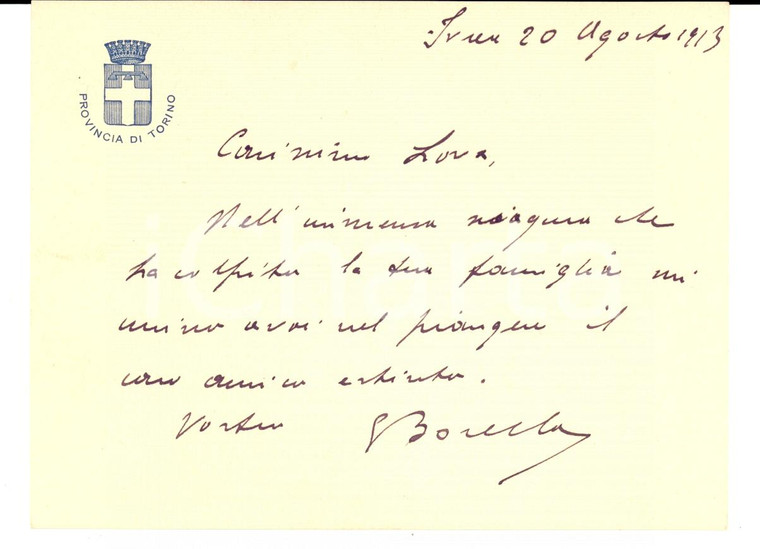 Ivrea 20 Agosto 1913
PROVINCIA DI TORINO
Carissimo Lova,
Nell'immensa sciagura che
ha colpito la tua famiglia mi
unisco a voi nel piangere il
caro amico estinto.
Vostro GBorella
iCharta